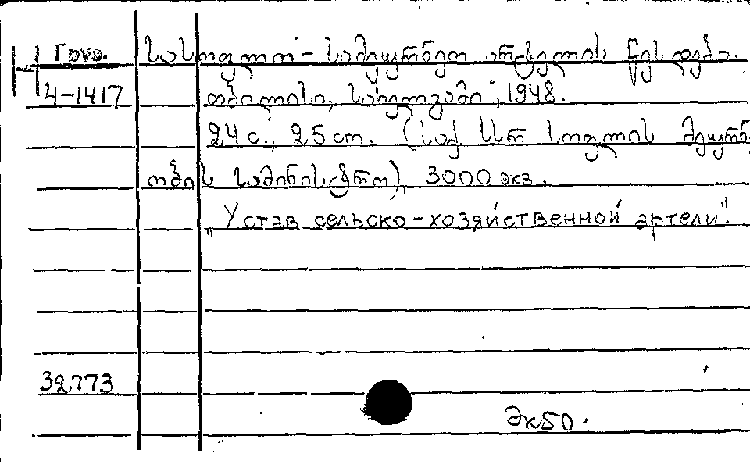 Груз. სასოფლო-სამეურნეო არტელის წესდება.
4-1417 თბილისი, სახელგამი, 1948.
24 с., 25 cm. (საქ. სსრ სოფლის მეურნე
ობის სამინისტრო), 3000 экз.
„Устав сельско-хозяйственной артели“.
32.773